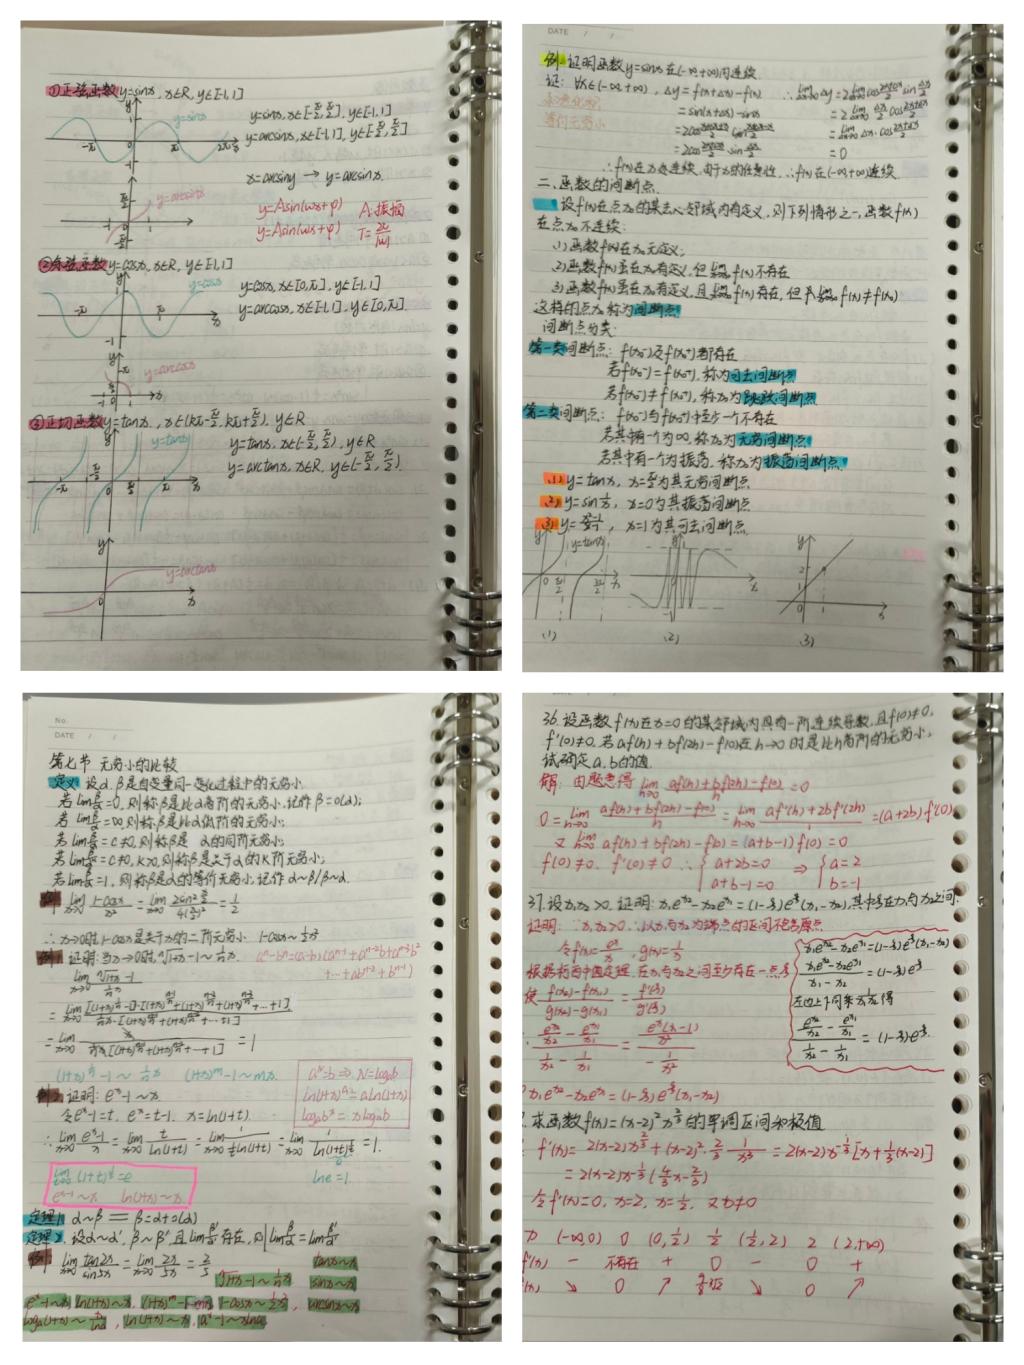 ①正弦函数y=sinx, x∈R, y∈[-1,1]
y=sinx
y=sinx, x∈[-π/2, π/2], y∈[-1,1]
y=arcsinx, x∈[-1,1], y∈[-π/2, π/2]
x=arcsiny → y=arcsinx
y=arcsinx
y=Asin(ωx+φ) A:振幅
y=Asin(ωx+φ) T=2π/|ω|
②余弦函数y=cosx, x∈R, y∈[-1,1]
y=cosx
y=cosx, x∈[0,π], y∈[-1,1]
y=arccosx, x∈[-1,1], y∈[0,π]
y=arccosx
③正切函数y=tanx, x∈(kπ-π/2, kπ+π/2), y∈R
y=tanx
y=tanx, x∈(-π/2, π/2), y∈R
y=arctanx, x∈R, y∈(-π/2, π/2)
y=arctanx
DATE / /
例 证明函数y=sinx在(-∞,+∞)内连续
证: ∀x∈(-∞,+∞), Δy=f(x+Δx)-f(x)
=sin(x+Δx)-sinx
等价无穷小
=0
∴f(x)在x处连续,由于x的任意性,∴f(x)在(-∞,+∞)连续
二、函数的间断点
设f(x)在点x₀的某去心邻域内有定义,则下列情形之一,函数f(x)
在点x₀不连续:
(1)函数f(x)在x₀无定义;
(2)函数f(x)虽在x₀有定义,但lim f(x)不存在
(3)函数f(x)虽在x₀有定义,且lim f(x)存在,但lim f(x)≠f(x₀)
这样的点x₀称为间断点
间断点分类:
第一类间断点: f(x₀⁻)及f(x₀⁺)都存在
若f(x₀⁻)=f(x₀⁺),称为可去间断点
若f(x₀⁻)≠f(x₀⁺),称为跳跃间断点
第二类间断点: f(x₀⁻)与f(x₀⁺)中至少一个不存在
若其中有一个为∞,称x₀为无穷间断点
若其中有一个为振荡,称x₀为振荡间断点
(1) y=tanx, x=π/2为其无穷间断点
(2) y=sin 1/x, x=0为其振荡间断点
(3) y=(x²-1)/(x-1), x=1为其可去间断点
y=tanx
(1) (2) (3)
No.
DATE / /
第七节 无穷小的比较
定义 设α,β是自变量同一变化过程中的无穷小
若lim β/α=0,则称β是比α高阶的无穷小,记作β=o(α);
若lim β/α=∞,则称β是比α低阶的无穷小;
若lim β/α=c≠0,则称β是 α的同阶无穷小;
若lim β/αᵏ=c≠0, k>0,则称β是关于α的k阶无穷小;
若lim β/α=1,则称β是α的等价无穷小,记作α~β/β~α.
例 lim(x→0) (1-cosx)/x² = lim(x→0) 2sin²(x/2)/4(x/2)² = 1/2
∴x→0时,1-cosx是关于x的二阶无穷小 1-cosx~½x²
例1 证明:当x→0时,ⁿ√(1+x)-1~(1/n)x. aⁿ-bⁿ=(a-b)(aⁿ⁻¹+aⁿ⁻²b+aⁿ⁻³b²
+…+abⁿ⁻²+bⁿ⁻¹)
lim(x→0) (ⁿ√(1+x)-1)/((1/n)x)
=1
(1+x)^(1/n)-1~(1/n)x (1+x)ᵐ-1~mx
例2 证明: eˣ-1~x
令eˣ-1=t, eˣ=t-1, x=ln(1+t)
aᴺ=b⇒N=logₐb
ln(1+x)ᵃ=aln(1+x)
logₐbˣ=xlogₐb
∴lim(x→0) (eˣ-1)/x = lim(t→0) t/ln(1+t) = lim(t→0) 1/((1/t)ln(1+t)) = lim(t→0) 1/ln(1+t)^(1/t) = 1.
lim(t→0) (1+t)^(1/t)=e
eˣ-1~x ln(1+x)~x
lne=1
定理1 α~β ⇔ β=α+o(α)
定理2 设α~α', β~β',且lim β'/α'存在,则lim β/α=lim β'/α'
例 lim(x→0) tan2x/sin5x = lim(x→0) 2x/5x = 2/5
tanx~x
ⁿ√(1+x)-1~(1/n)x sinx~x
eˣ-1~x, ln(1+x)~x, (1+x)ᵐ-1~mx, 1-cosx~½x², arcsinx~x
logₐ(1+x)~x/lna, ln(1+x)~x, aˣ-1~xlna
36.设函数f(x)在x=0的某邻域内具有一阶连续导数,且f(0)≠0,
f'(0)≠0,若af(h)+bf(2h)-f(0)在h→0时是比h高阶的无穷小,
试确定a,b的值
解: 由题意得 lim(h→0) (af(h)+bf(2h)-f(0))/h=0
0=lim(h→0) (af(h)+bf(2h)-f(0))/h = lim(h→0) (af'(h)+2bf'(2h))/1 = (a+2b)f'(0)
又 lim(h→0) af(h)+bf(2h)-f(0)=(a+b-1)f(0)=0
f(0)≠0, f'(0)≠0 ∴{a+2b=0, a+b-1=0 ⇒ {a=2, b=-1
37.设x₁x₂>0,证明:x₁e^x₂-x₂e^x₁=(1-ξ)e^ξ(x₁-x₂),其中ξ在x₁与x₂之间.
证明: ∵x₁x₂>0 ∴以x₁与x₂为端点的区间不包含原点
令f(x)=eˣ/x, g(x)=1/x
根据柯西中值定理,在x₁与x₂之间至少存在一点ξ
使 (f(x₂)-f(x₁))/(g(x₂)-g(x₁)) = f'(ξ)/g'(ξ)
x₁e^x₂-x₂e^x₁=(1-ξ)e^ξ(x₁-x₂)
(x₁e^x₂-x₂e^x₁)/(x₁-x₂)=(1-ξ)e^ξ
左边上下同乘1/x₁x₂得
(e^x₂/x₂-e^x₁/x₁)/(1/x₂-1/x₁)=(1-ξ)e^ξ
(e^x₂/x₂-e^x₁/x₁)/(1/x₂-1/x₁) = (e^ξ(ξ-1)/ξ²)/(-1/ξ²)
x₁e^x₂-x₂e^x₁=(1-ξ)e^ξ(x₁-x₂)
求函数f(x)=(x-2)²x^(2/3)的单调区间和极值
f'(x)=2(x-2)x^(2/3)+(x-2)²·2/3·1/x^(1/3)=2(x-2)x^(-1/3)[x+1/3(x-2)]
=2(x-2)x^(-1/3)(4/3x-2/3)
令f'(x)=0, x=2, x=½, 又x≠0
x (-∞,0) 0 (0,½) ½ (½,2) 2 (2,+∞)
f'(x) - 不存在 + 0 - 0 +
f(x) ↘ 0 ↗ ↘ 0 ↗